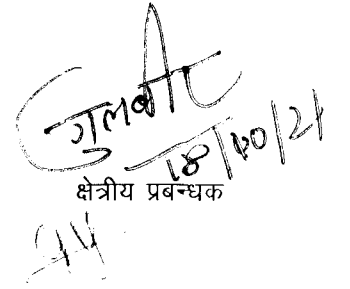 गुलबीर
18/10/21
क्षेत्रीय प्रबन्धक